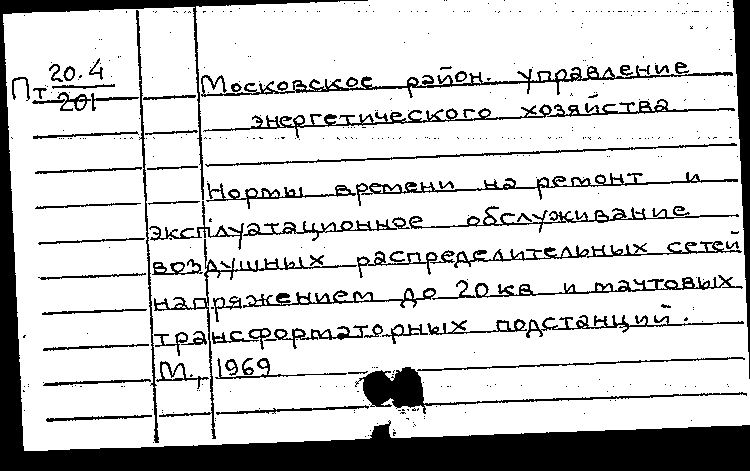 Пт 20.4/201
Московское район. управление
энергетического хозяйства
Нормы времени на ремонт и
эксплуатационное обслуживание
воздушных распределительных сетей
напряжением до 20 кв и мачтовых
трансформаторных подстанций.
М., 1969